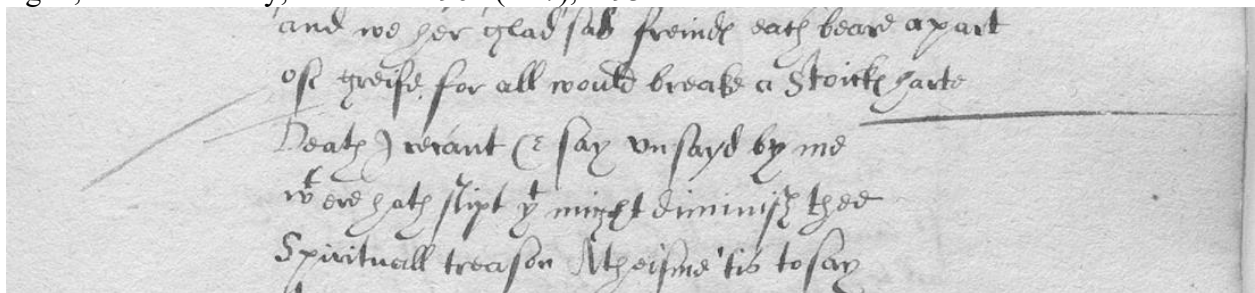 and we her glad sad freinds each beare apart
of greife, for all would breake a Stoicks harte
Death I recant & say vnsayd by me
wt ere hath slipt yt might diminish thee
Spirituall treason Atheisme 'tis to say